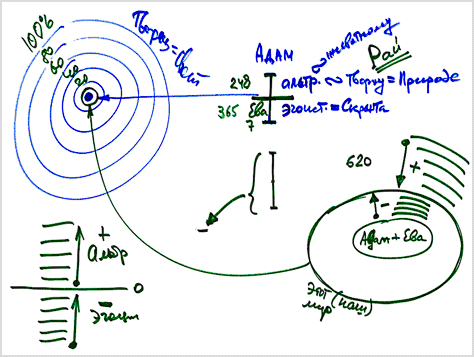 100%
80
60
40
20
Творец = Свет
АДАМ
∾ животному
Рай
248
альтр. ∾ Творцу = Природе
365
Ева
эгоист. = Скрыта
7
620
+
−
Адам + Ева
Этот
мир (наш)
−
+
Альтр
0
−
Эгоизм